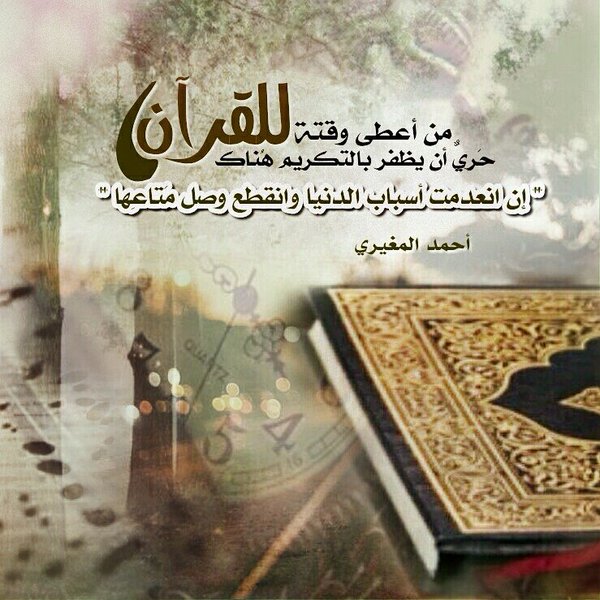 من أعطى وقتة للقرآن
حَريٌ أن يظفر بالتكريم هُناك
" إن انعدمت أسباب الدنيا وانقطع وصل مَتاعها "
أحمد المغيري
5 4
16